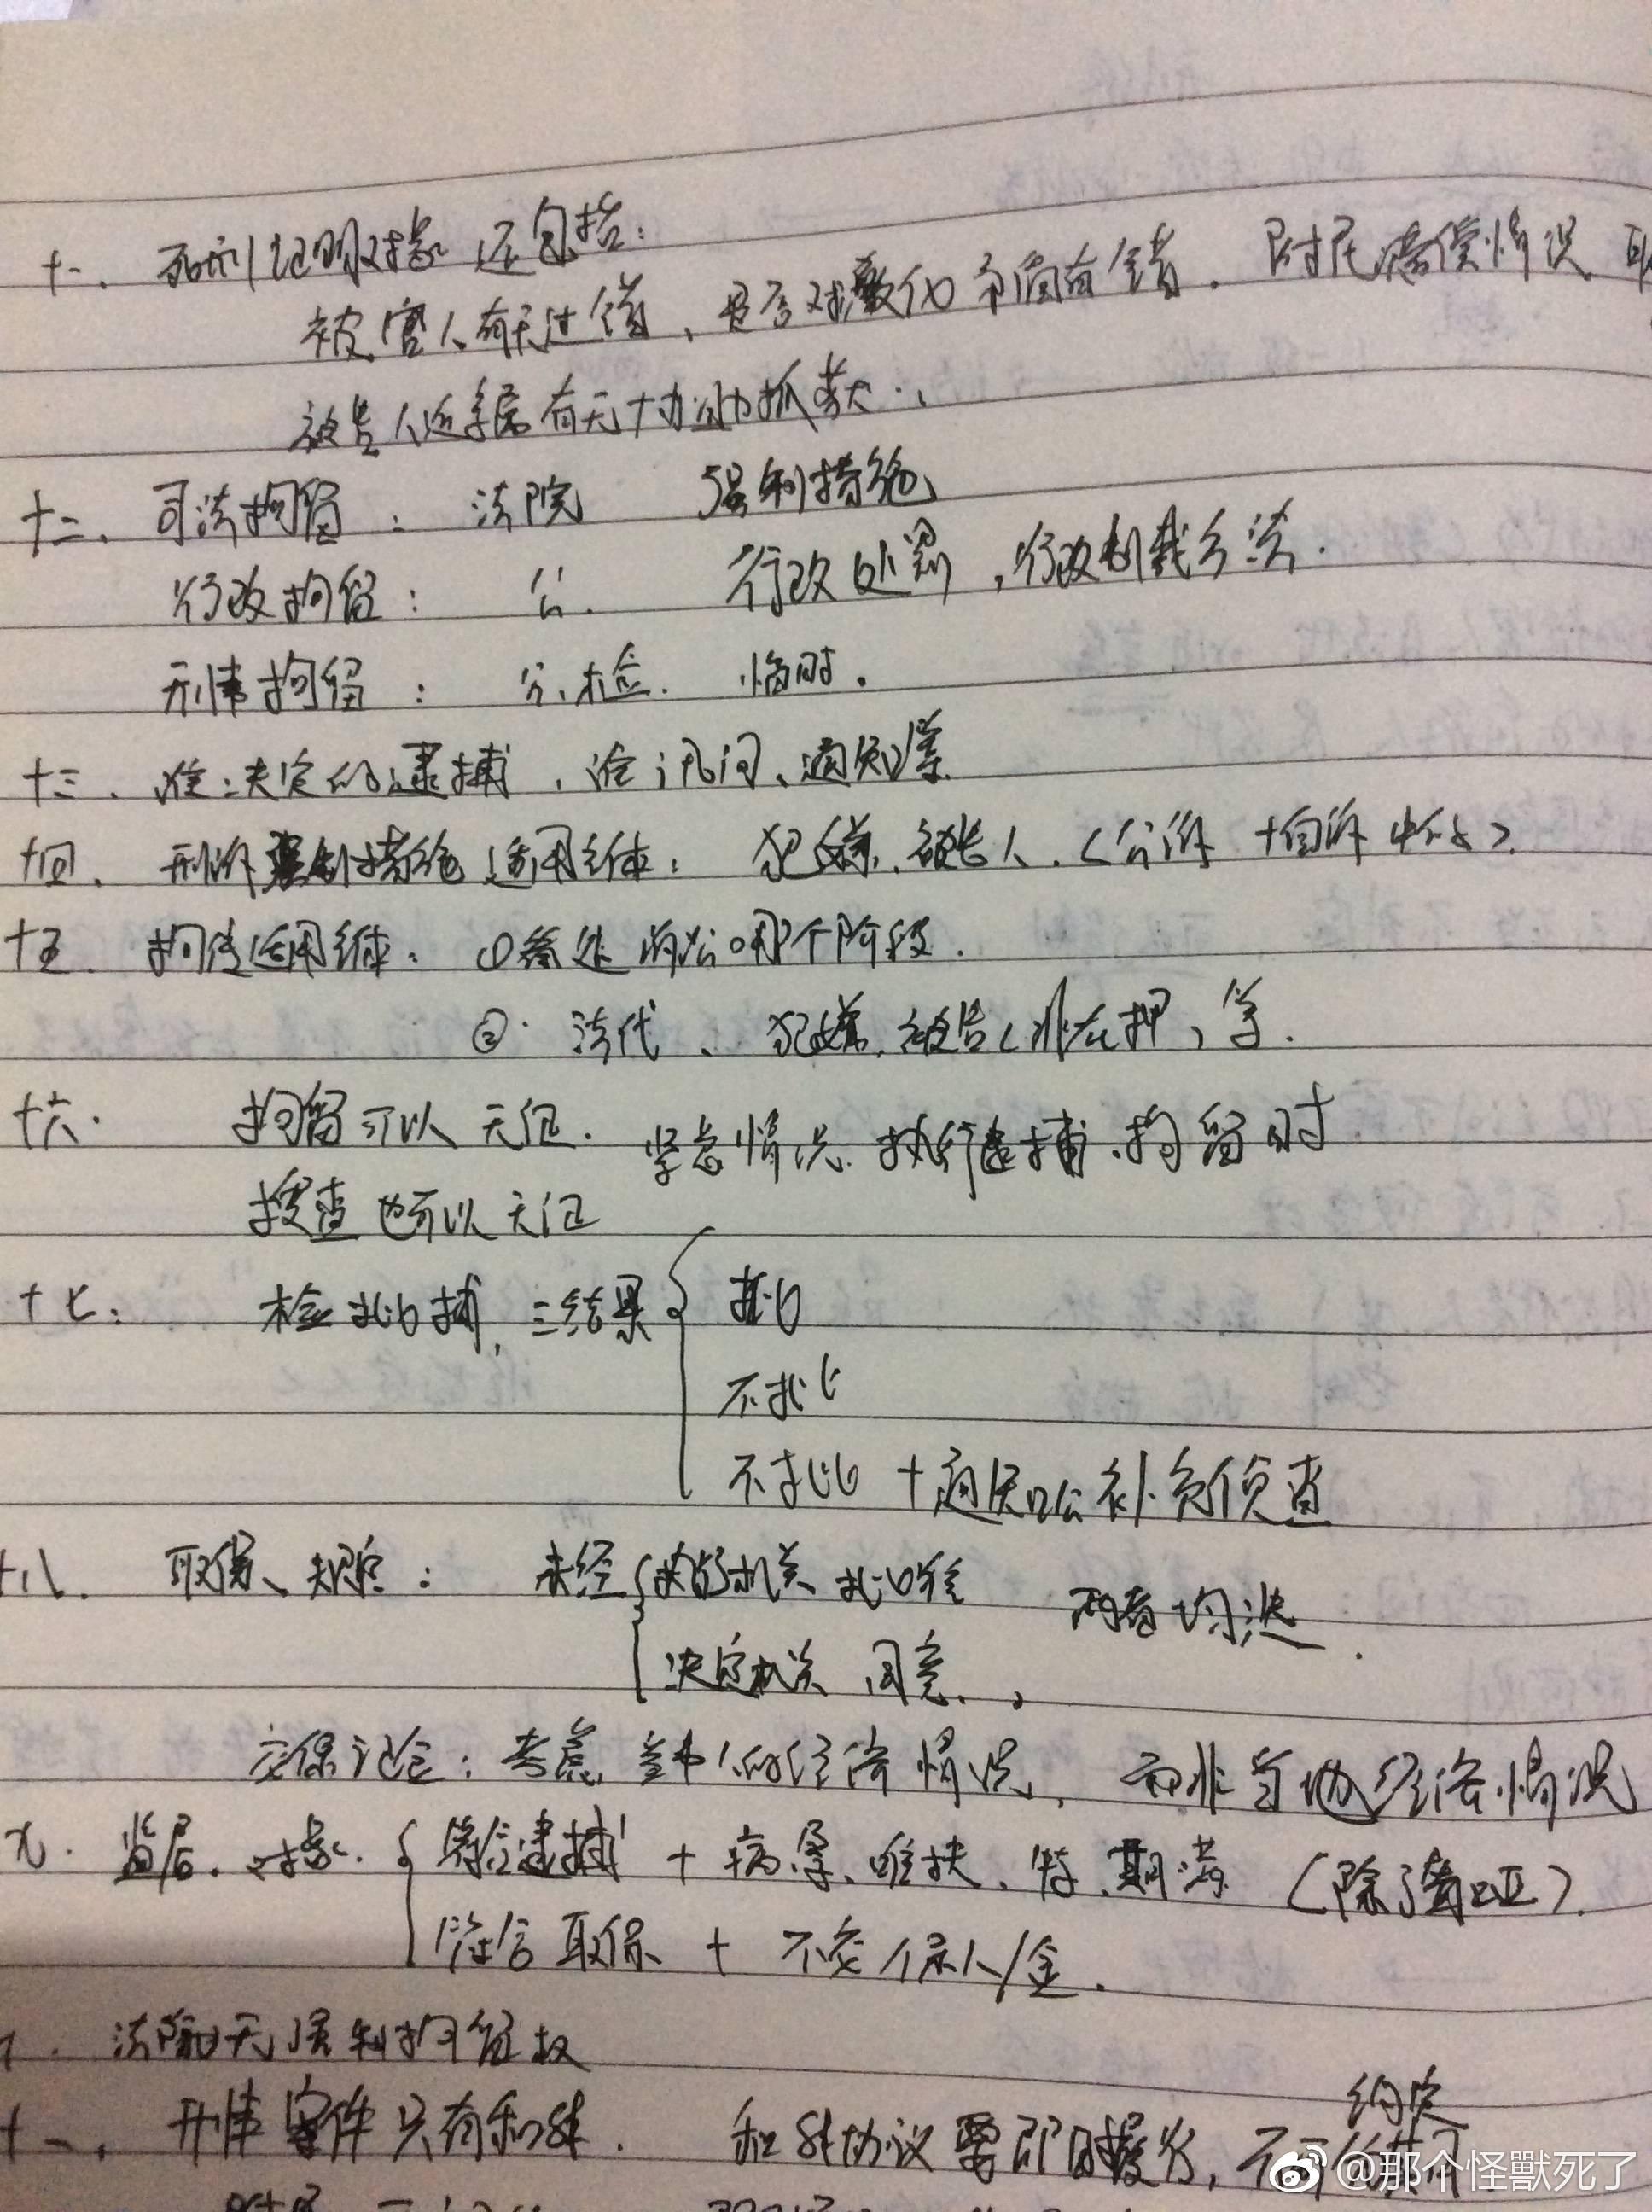 十一、死刑证明对象还包括:
被害人有无过错、是否对激化矛盾有错. 附民赔偿情况
被告人近亲属有无协助抓获、
十二、司法拘留: 法院 强制措施
行政拘留: 公. 行政处罚,行政制裁方法.
刑事拘留: 公、检. 临时.
十三. 谁决定的逮捕,谁讯问、通知家
十四. 刑诉强制措施适用 : 犯嫌、被告人.(公诉+自诉中的)
十五. 拘传适用 : ①
哪个阶段.
②. 法代、 犯嫌、被告(非在押)等.
十六. 拘留可以无证. 紧急情况.执行逮捕、拘留时
搜查也可以无证
十七: 检批捕,三结果
批
不批
不批 +通知公补充侦查
十八. 取保、 : 未经 执行机关批准 两者均
决定机关同意.,
交保证金:考虑 的经济情况,而非当地经济情况
九. 监居.对象. 符合逮捕+病孕、唯扶、特、期满(除了聋哑).
符合取保+不交保人/金.
法院无 制拘留权
十一. 刑事案件只有和解. 和解协议需即时履行,不
约定
@那个怪獸死了